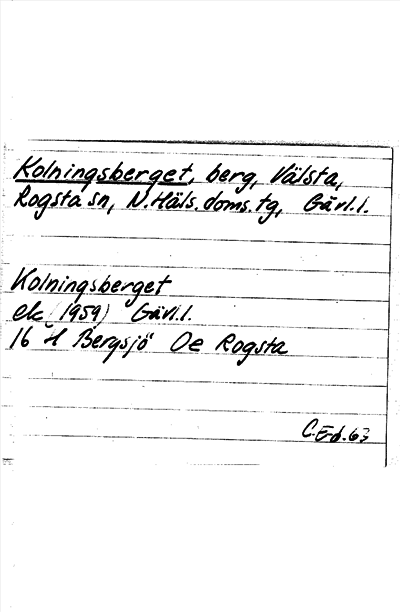 Kolningsberget, berg, Välsta,
Rogsta sn, N. Häls. doms. tg, Gävl.l.
Kolningsberget
ek (1959) Gävl.l.
16 H Bergsjö Oe Rogsta
C.E-d.63